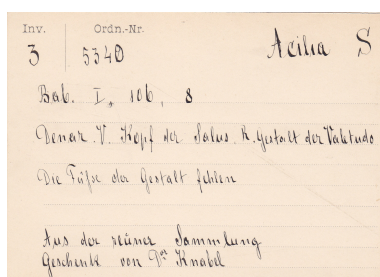 Inv. Ordn.-Nr. Acilia S
3 5340
Bab. I, 106, 8
Denar. V. Kopf der Salus R. Gestalt der Valetudo
Die Füße der Gestalt fehlen
Aus der Sammlung
Geschenk von Dr Knabel